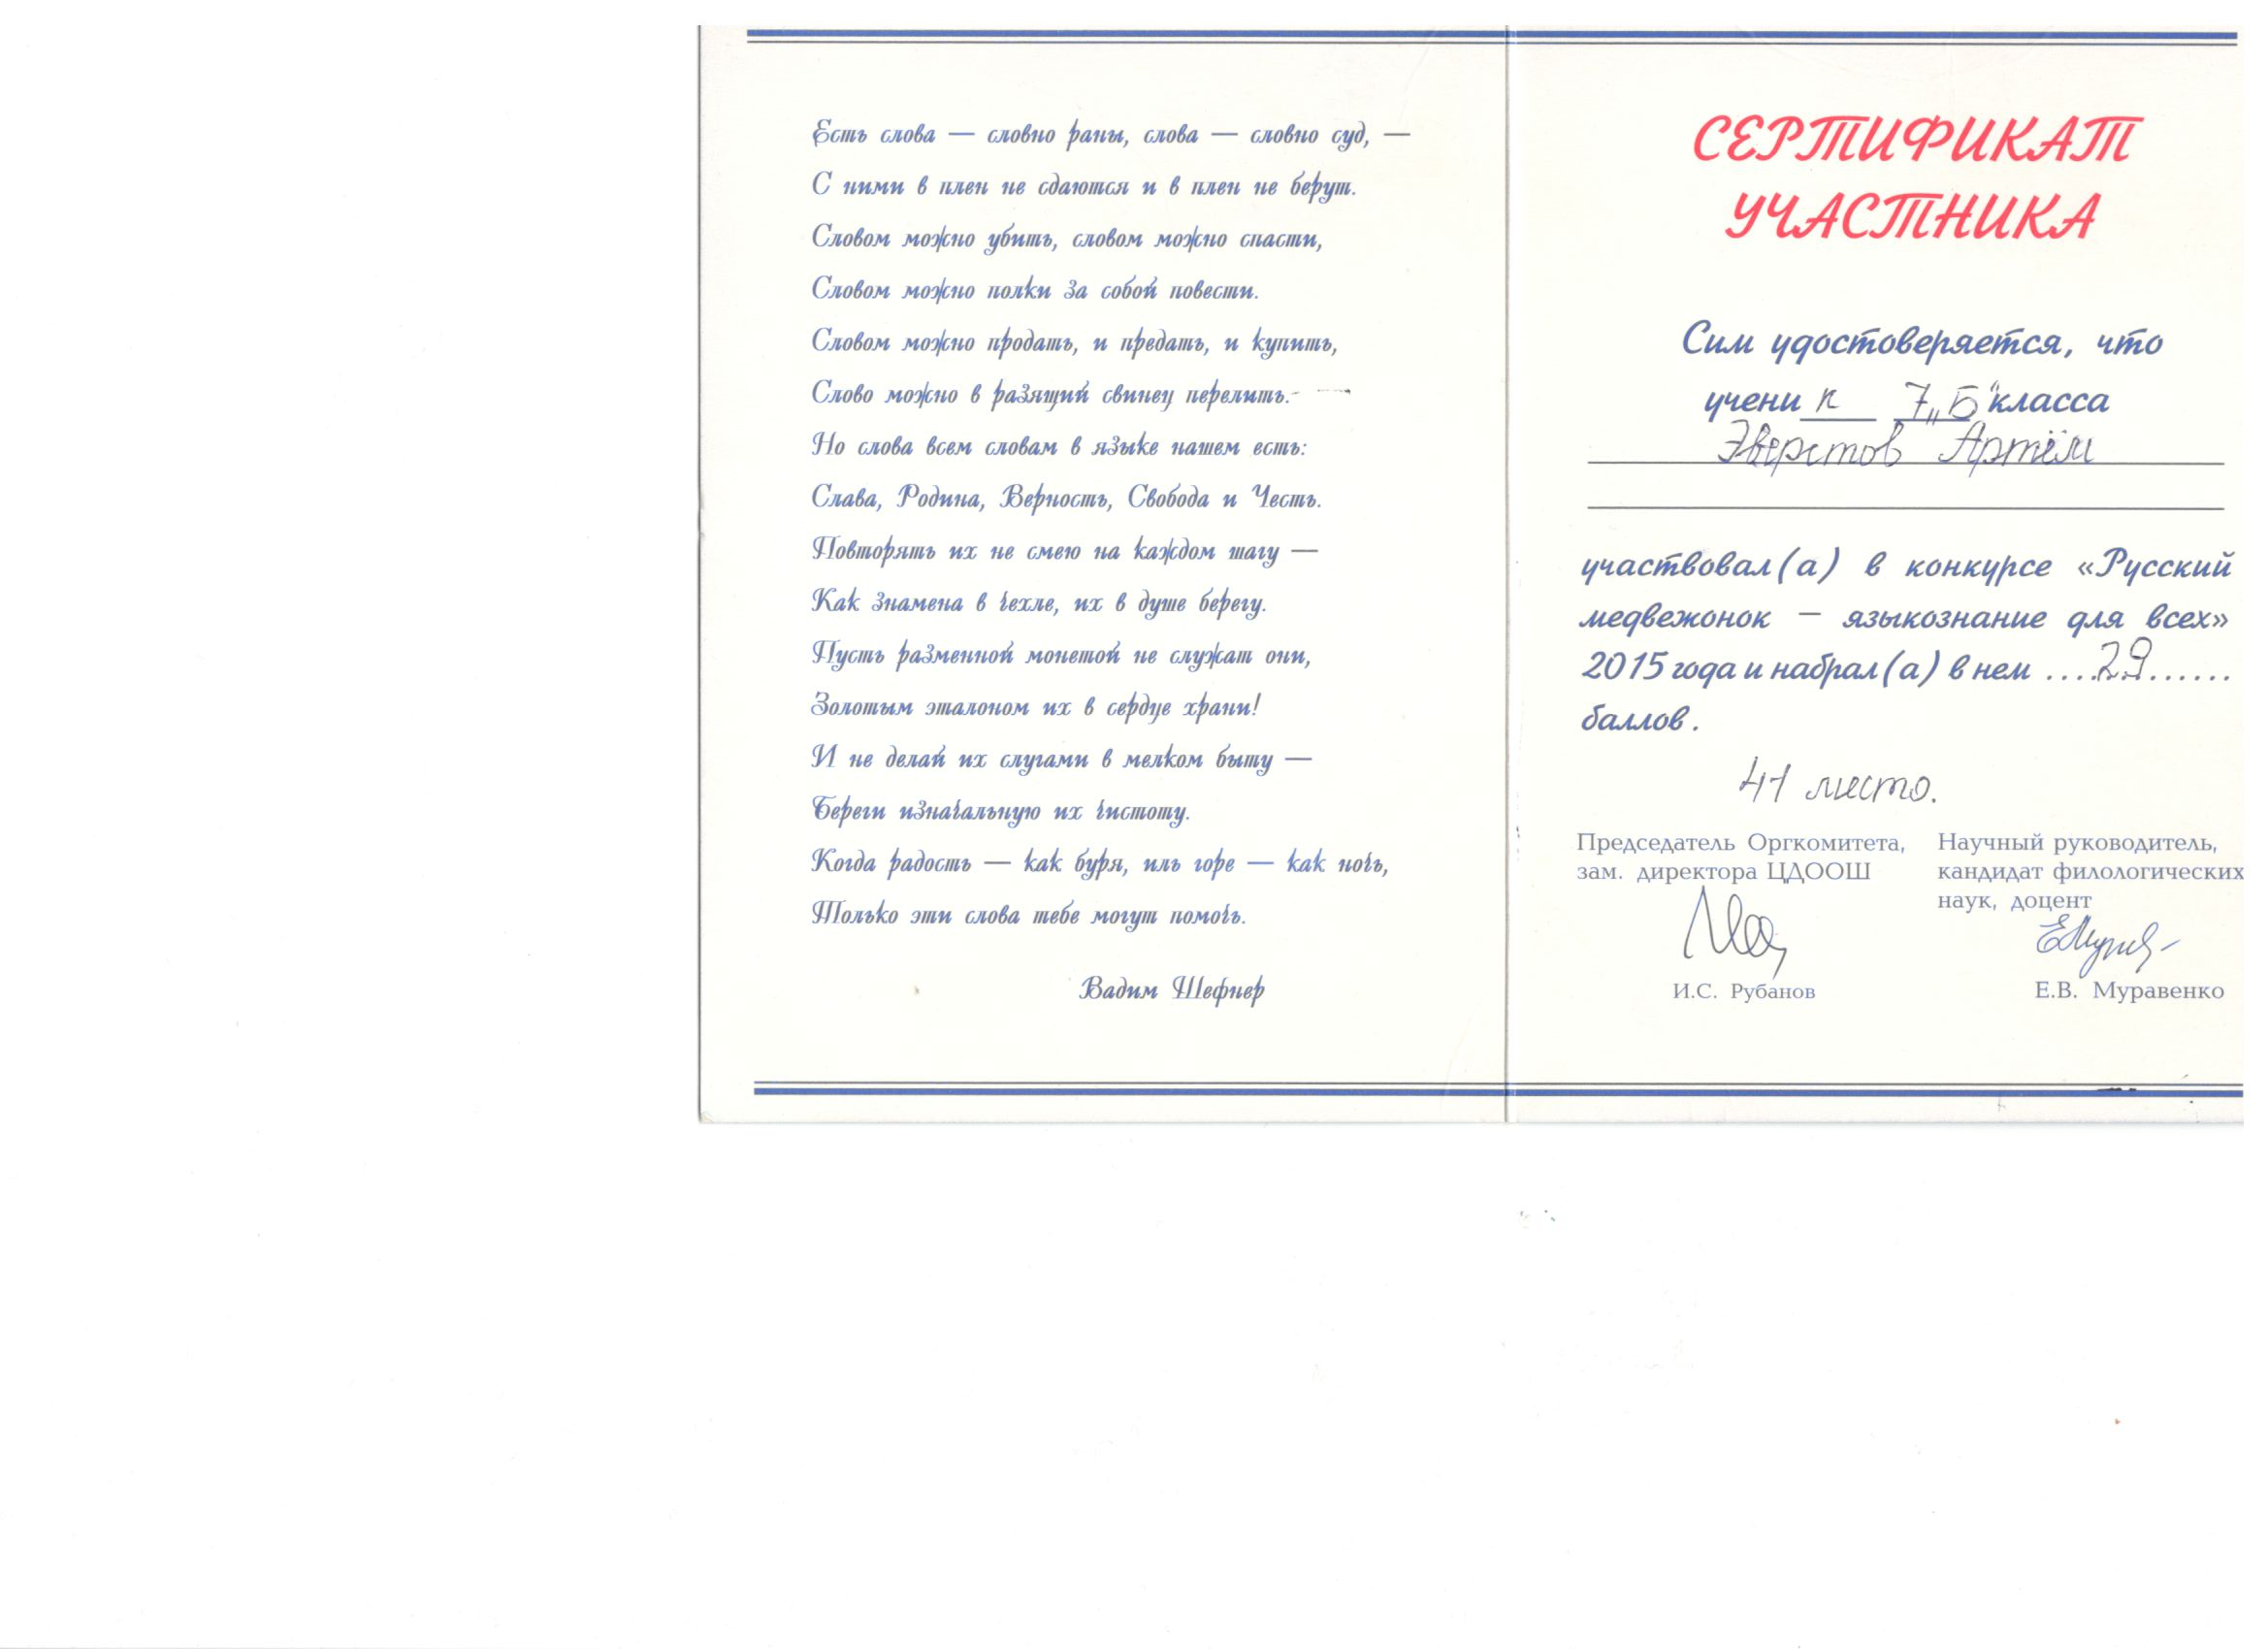 Есть слова — словно раны, слова — словно суд, —
С ними в плен не сдаются и в плен не берут.
Словом можно убить, словом можно спасти,
Словом можно полки за собой повести.
Словом можно продать, и предать, и купить,
Слово можно в разящий свинец перелить.
Но слова всем словам в языке нашем есть:
Слава, Родина, Верность, Свобода и Честь.
Повторять их не смею на каждом шагу —
Как знамена в чехле, их в душе берегу.
Пусть разменной монетой не служат они,
Золотым эталоном их в сердце храни!
И не делай их слугами в мелком быту —
Береги изначальную их чистоту.
Когда радость — как буря, иль горе — как ночь,
Только эти слова тебе могут помочь.
Вадим Шефнер
СЕРТИФИКАТ
УЧАСТНИКА
Сим удостоверяется, что
учени к 7 „Б" класса
Эверстов Артём
участвовал(а) в конкурсе «Русский
медвежонок – языкознание для всех»
2015 года и набрал(а) в нем ....29......
баллов.
41 место.
Председатель Оргкомитета,
зам. директора ЦДООШ
И.С. Рубанов
Научный руководитель,
кандидат филологических
наук, доцент
Е.В. Муравенко